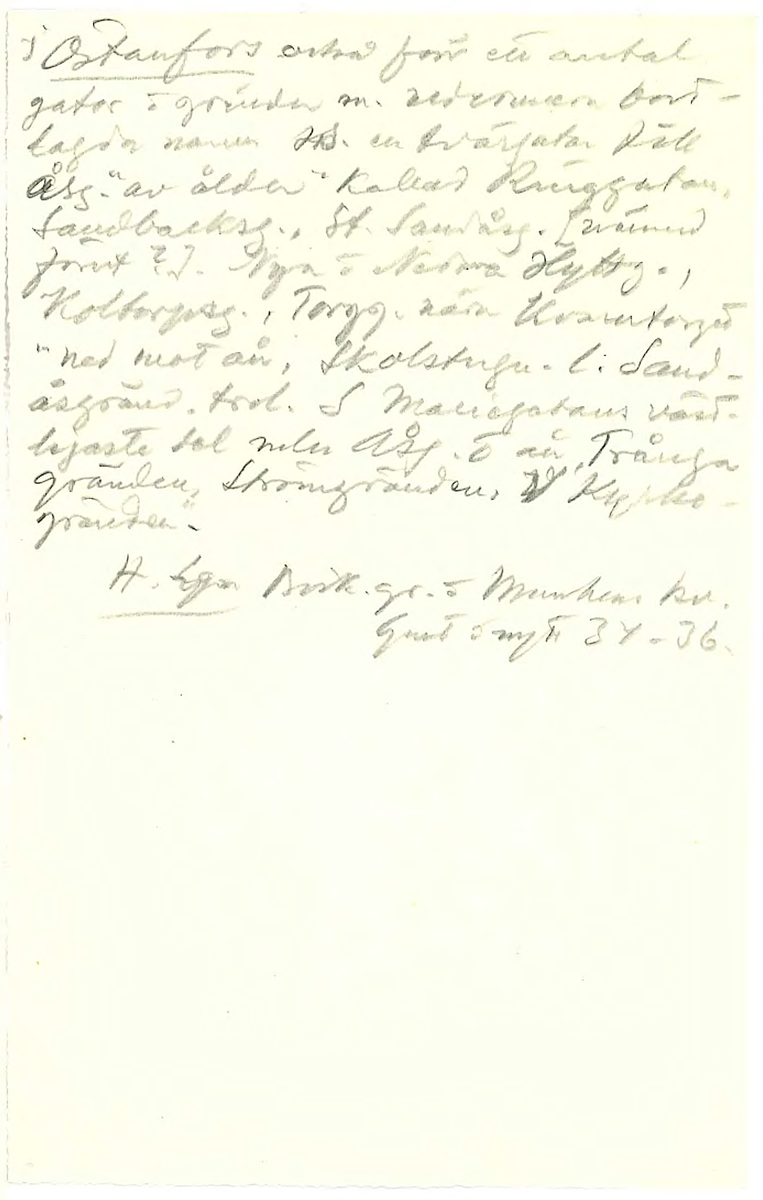 i Östanfors också förr ett antal
gator o gränder m. numera bort-
lagda namn. en tvärgata till
Åsg. "av ålder" kallad Ringgatan,
Sandbacksg., St. Sandåsg. [nämnd
förut?]. Nya o Nedra Hyttg.,
Kolborgsg., Torgg. nära Kvarntorget
"ned mot ån, Skolstugu- l. Sand-
åsgränd. trol. S Mariegatans väst-
ligaste del mln Åsg. o ån, Trånga
gränden, Strömgränden,
gränden".
H. Egn kv.
Gmt o nytt 34-36.